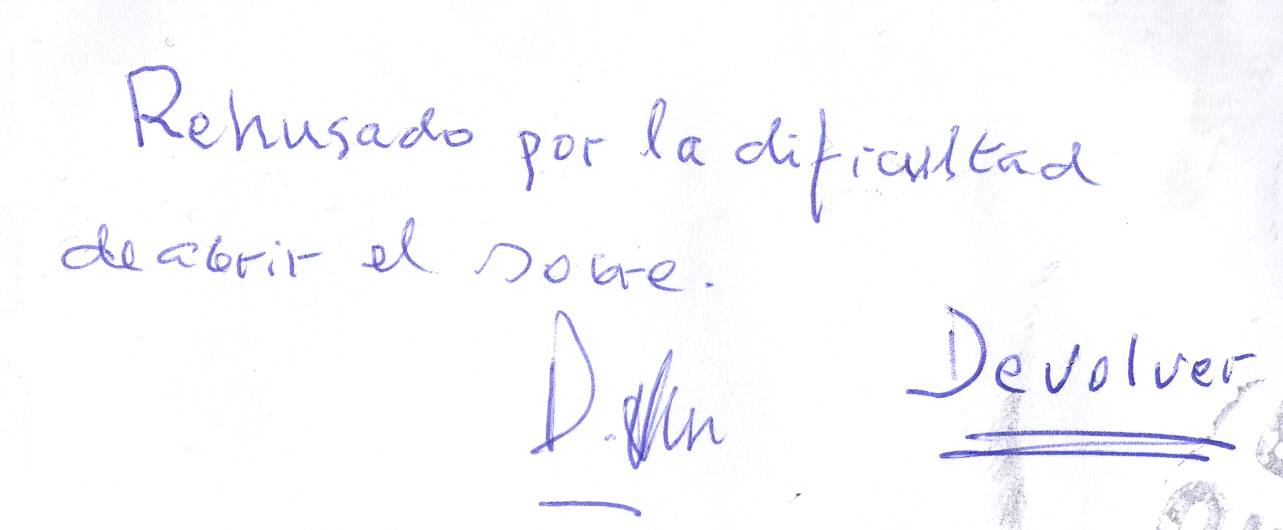 Rehusado por la dificultad
de abrir el sobre.
Devolver